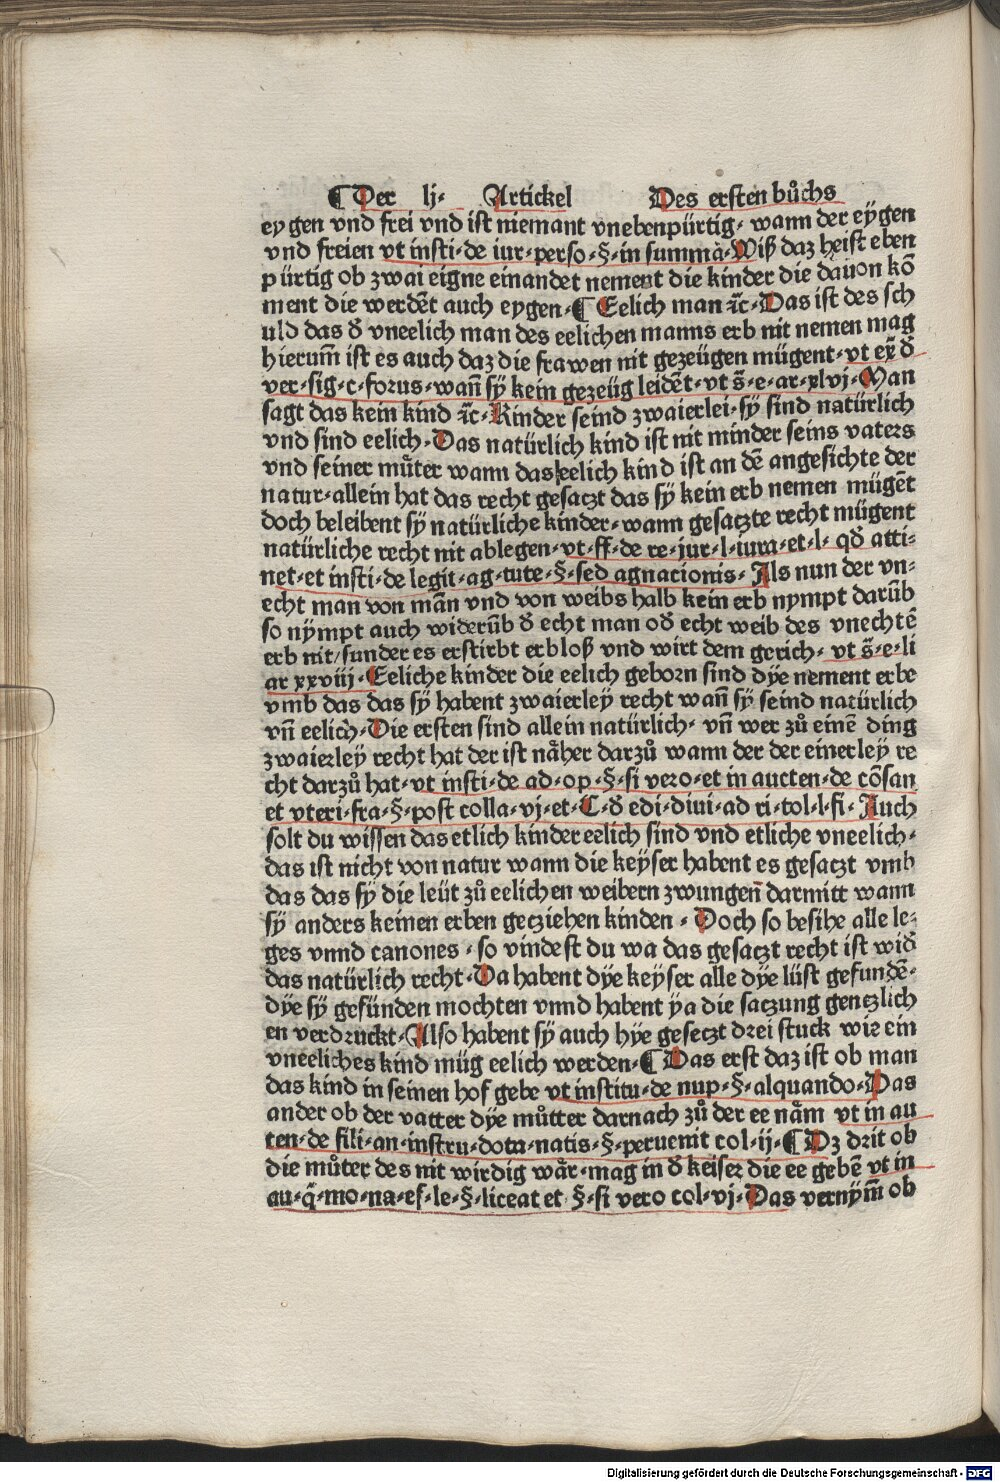 ¶ Der lj· Artickel Des ersten bůchs
eygen vnd frei vnd ist niemant vnebenpürtig· wann der eygen
vnd freien vt insti·de iur·perso·§·in summa·Wiß daz heist eben
pürtig ob zwai eigne einandet nement die kinder die dauon kō
ment die werdēt auch eygen·¶ Eelich man ⁊c̄·Das ist des sch
uld das d̄ vneelich man des eelichen manns erb nit nemen mag
hierum̄ ist es auch daz die frawen nit gezeügen mügent·vt ex̄ d̄
ver·sig·c·forus·wan̄ sÿ kein gezeüg leidēt·vt s̄·e·ar·xlvj·Man
sagt das kein kind ⁊c̄·Kinder seind zwaierlei·sÿ sind natürlich
vnd sind eelich·Das natürlich kind ist nit minder seins vaters
vnd seiner můter wann das eelich kind ist an dē angesichte der
natur·allein hat das recht gesaczt das sÿ kein erb nemen mügēt
doch beleibent sÿ natürliche kinder·wann gesaczte recht mügent
natürliche recht nit ablegen·vt·ff·de re·iur·l·iura·et·l· qd̄ atti⸗
net·et insti·de legit·ag·tute·§·sed agnacionis· Als nun der vn⸗
echt man von mān vnd von weibs halb kein erb nympt darūb
so nÿmpt auch widerūb d̄ echt man od̄ echt weib des vnechtē
erb nit/sunder es erstirbt erbloß vnd wirt dem gerich· vt s̄·e·li
ar xxviij·Eeliche kinder die eelich geborn sind dÿe nement erbe
vmb das das sÿ habent zwaierley recht wan̄ sÿ seind natürlich
vn̄ eelich·Die ersten sind allein natürlich· vn̄ wer zů einē ding
zwaierley recht hat der ist nåher darzů wann der der einerley re
cht darzů hat·vt insti·de ad·op·§·si vero·et in aucten·de cōsan
et vteri·fra·§·post colla·vj·et·C·d̄ edi·diui·ad ri·tol·l·fi·Auch
solt du wissen das etlich kinder eelich sind vnd etliche vneelich·
das ist nicht von natur wann die keÿser habent es gesaczt vmb
das das sÿ die leüt zů eelichen weibern zwungen̄ darmitt wann
sÿ anders keinen erben gecziehen kinden· Doch so besihe alle le⸗
ges vnnd canones·so vindest du wa das gesaczt recht ist wid̄
das natürlich recht·Da habent dÿe keÿser alle dÿe lüst gefundē·
dÿe sÿ gefünden mochten vnnd habent ÿa die saczung genczlich
en verdruckt·Also habent sÿ auch hÿe gesetzt drei stuck wie ein
vneeliches kind müg eelich werden·¶ Das erst daz ist ob man
das kind in seinen hof gebe vt institu·de nup·§·alquando·Das
ander ob der vatter dÿe můtter darnach zů der ee nåm vt in au
ten·de fili·an·instru·dota·natis·§·peruenit col·ij·¶ Dz drit ob
die můter des nit wirdig wår·mag in d̄ keiser die ee gebē vt in
au·q̄·mo·na·ef·le·§·liceat et §·si vero col·vj·Das vernym̄ ob
Digitalisierung gefördert durch die Deutsche Forschungsgemeinschaft - DFG